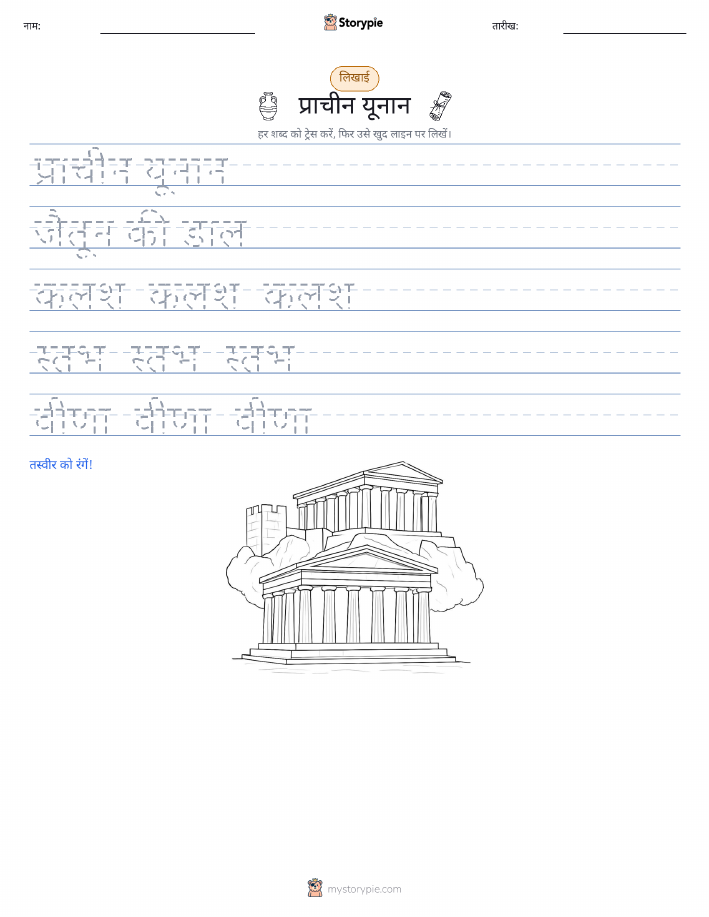 नाम:
Storypie
तारीख:
लिखाई
प्राचीन यूनान
हर शब्द को ट्रेस करें, फिर उसे खुद लाइन पर लिखें।
प्राचीन यूनान
जैतून की डाल
कलश कलश कलश
स्तंभ स्तंभ स्तंभ
वीणा वीणा वीणा
तस्वीर को रंगें!
mystorypie.com